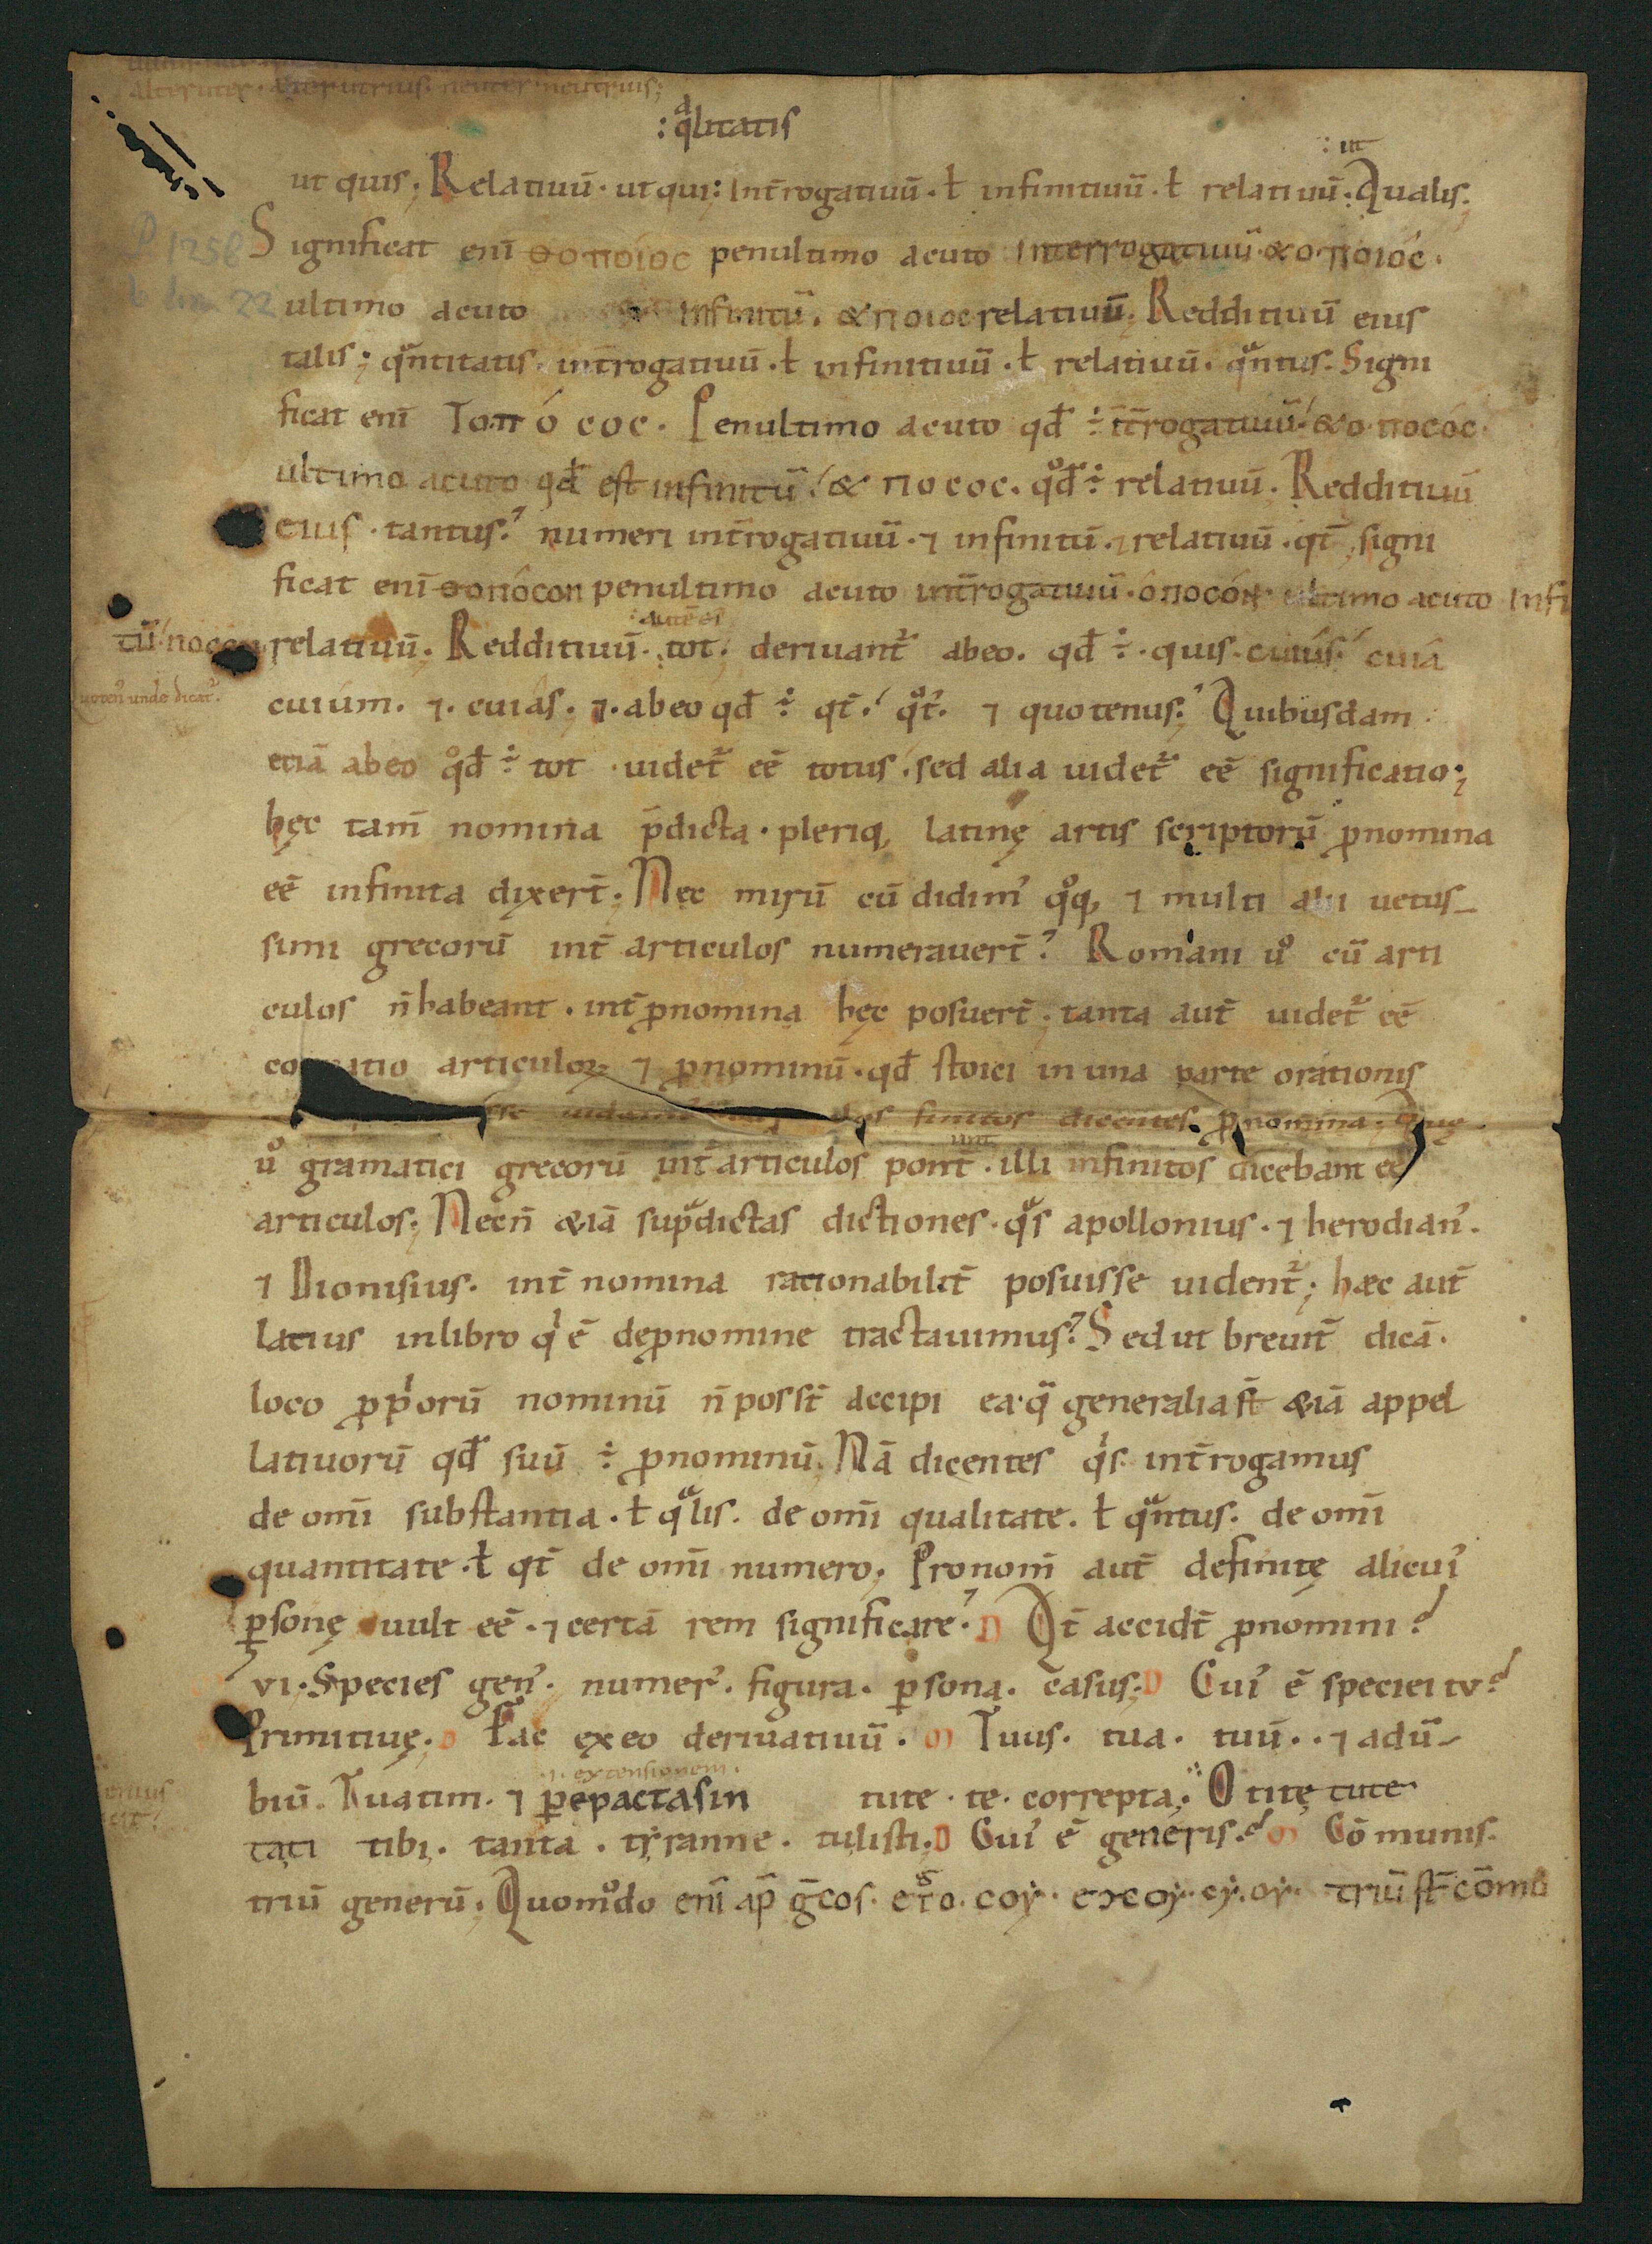 alteruter. alterutrius. neuter neutrius;
: qͣlitatis
: ut
ut quis; Relatiuū. ut qui: int̄rogatiuū. ł infinitiuū. ł relatiuū. Qualis;
Significat eni͞ ⲑo ποίος penultimo acuto interrogatiuū. & o. ποιός.
ultimo acuto infinitū. & ποιος relatiuū; Redditiuū eius
talis; qͣntitatis. int̄rogatiuū. ł infinitiuū. ł relatiuū. qͣntus. Signi
ficat eni͞ Το πόσος. Penultimo acuto qđ ÷ īt̄rogatiuū. & o ποσός.
ultimo acuto qđ est infinitū. & ποσος. qͦđ ÷ relatiuū. Redditiuū
eius. tantus. numeri int̄rogatiuū. ⁊ infinitū. ⁊ relatiuū. qt̄. signi
ficat eni͞ ⲑo πόσον penultimo acuto int̄rogatiuū. ὁποσόν ultimo acuto infi
tū. ποσον relatiuū. Redditiuū. tot; deriuant᷑ abeo. qđ ÷. quis. cuius. cuiá
uoten᾽ unde dicat᷑.
cuiúm. ⁊. cuiâs. ⁊. abeo qđ ÷ qt̄. qͦt᷑. ⁊ quotenus; Quibusdam
etiā abeo qͦđ ÷ tot. uidet᷑ eē totus. sed alia uidet᷑ eē significatio;
hęc tam̄ nomina p̄dicta. pleriq, latinę artis scriptorū ꝓnomina
eē infinita dixert̄. Nec mirū cū didim᾽ qͦq, ⁊ multi alii uetus-
simi grecorū int̄ articulos numerauert̄. Romani uͦ cū arti
culos n̄ habeant. int̄ ꝓnomina hęc posuert̄. tanta aut̄ uidet᷑ eē
co atio articuloꝝ ⁊ ꝓnominū. qđ stoici in una parte orationis
los finitos dicentes ꝓnomina; Quę
uͦ gramatici grecorū int̄ articulos pont̄. illi infinitos dicebant eē
articulos; Necn̄ &iā supͣdictas dictiones. qͣs apollonius. ⁊ herodian᾽.
⁊ Dionisius. int̄ nomina racionabilit̄ posuisse uident᷑; hæc aut̄
latius inlibro qͥ ē deꝓnomine tractauimus. Sed ut breuit̄ dicā.
loco ꝓpͥorū nominū n̄ posst̄ accipi ea. q̄ generalia st̄ &iā appel
latiuorū qđ suū ÷ ꝓnominū. Nā dicentes qͥs. int̄rogamus
de omi͞ substantia. ł qͣlis. de omi͞ qualitate. ł qͣntus. de omi͞
quantitate. ł qt̄ de omi͞ numero; Pronom̄ aut̄ definitę alicui᾽
ꝑsonę uult eē. ⁊ certā rem significare. D Qt̄ accidt̄ ꝓnomini?
VI. Species gen᾽. numer᾽. figura. ꝑsona. casus; D Cui᾽ ē speciei tv?
Primitiuę. D Fac ex eo deriuatiuū. M Tuus. tua. tuū.. ⁊ adū-
.i. extensionem.
biū. Tuatim. ⁊ ꝑ epactasin tute. te. correpta. O tite tute
tati tibi. tanta. tyranne. tulisti. D Cui᾽ ē generis? M Cōmunis.
triū generū; Quomͦdo eni͞ ap̄ ḡcos. triū st̄ cōmō